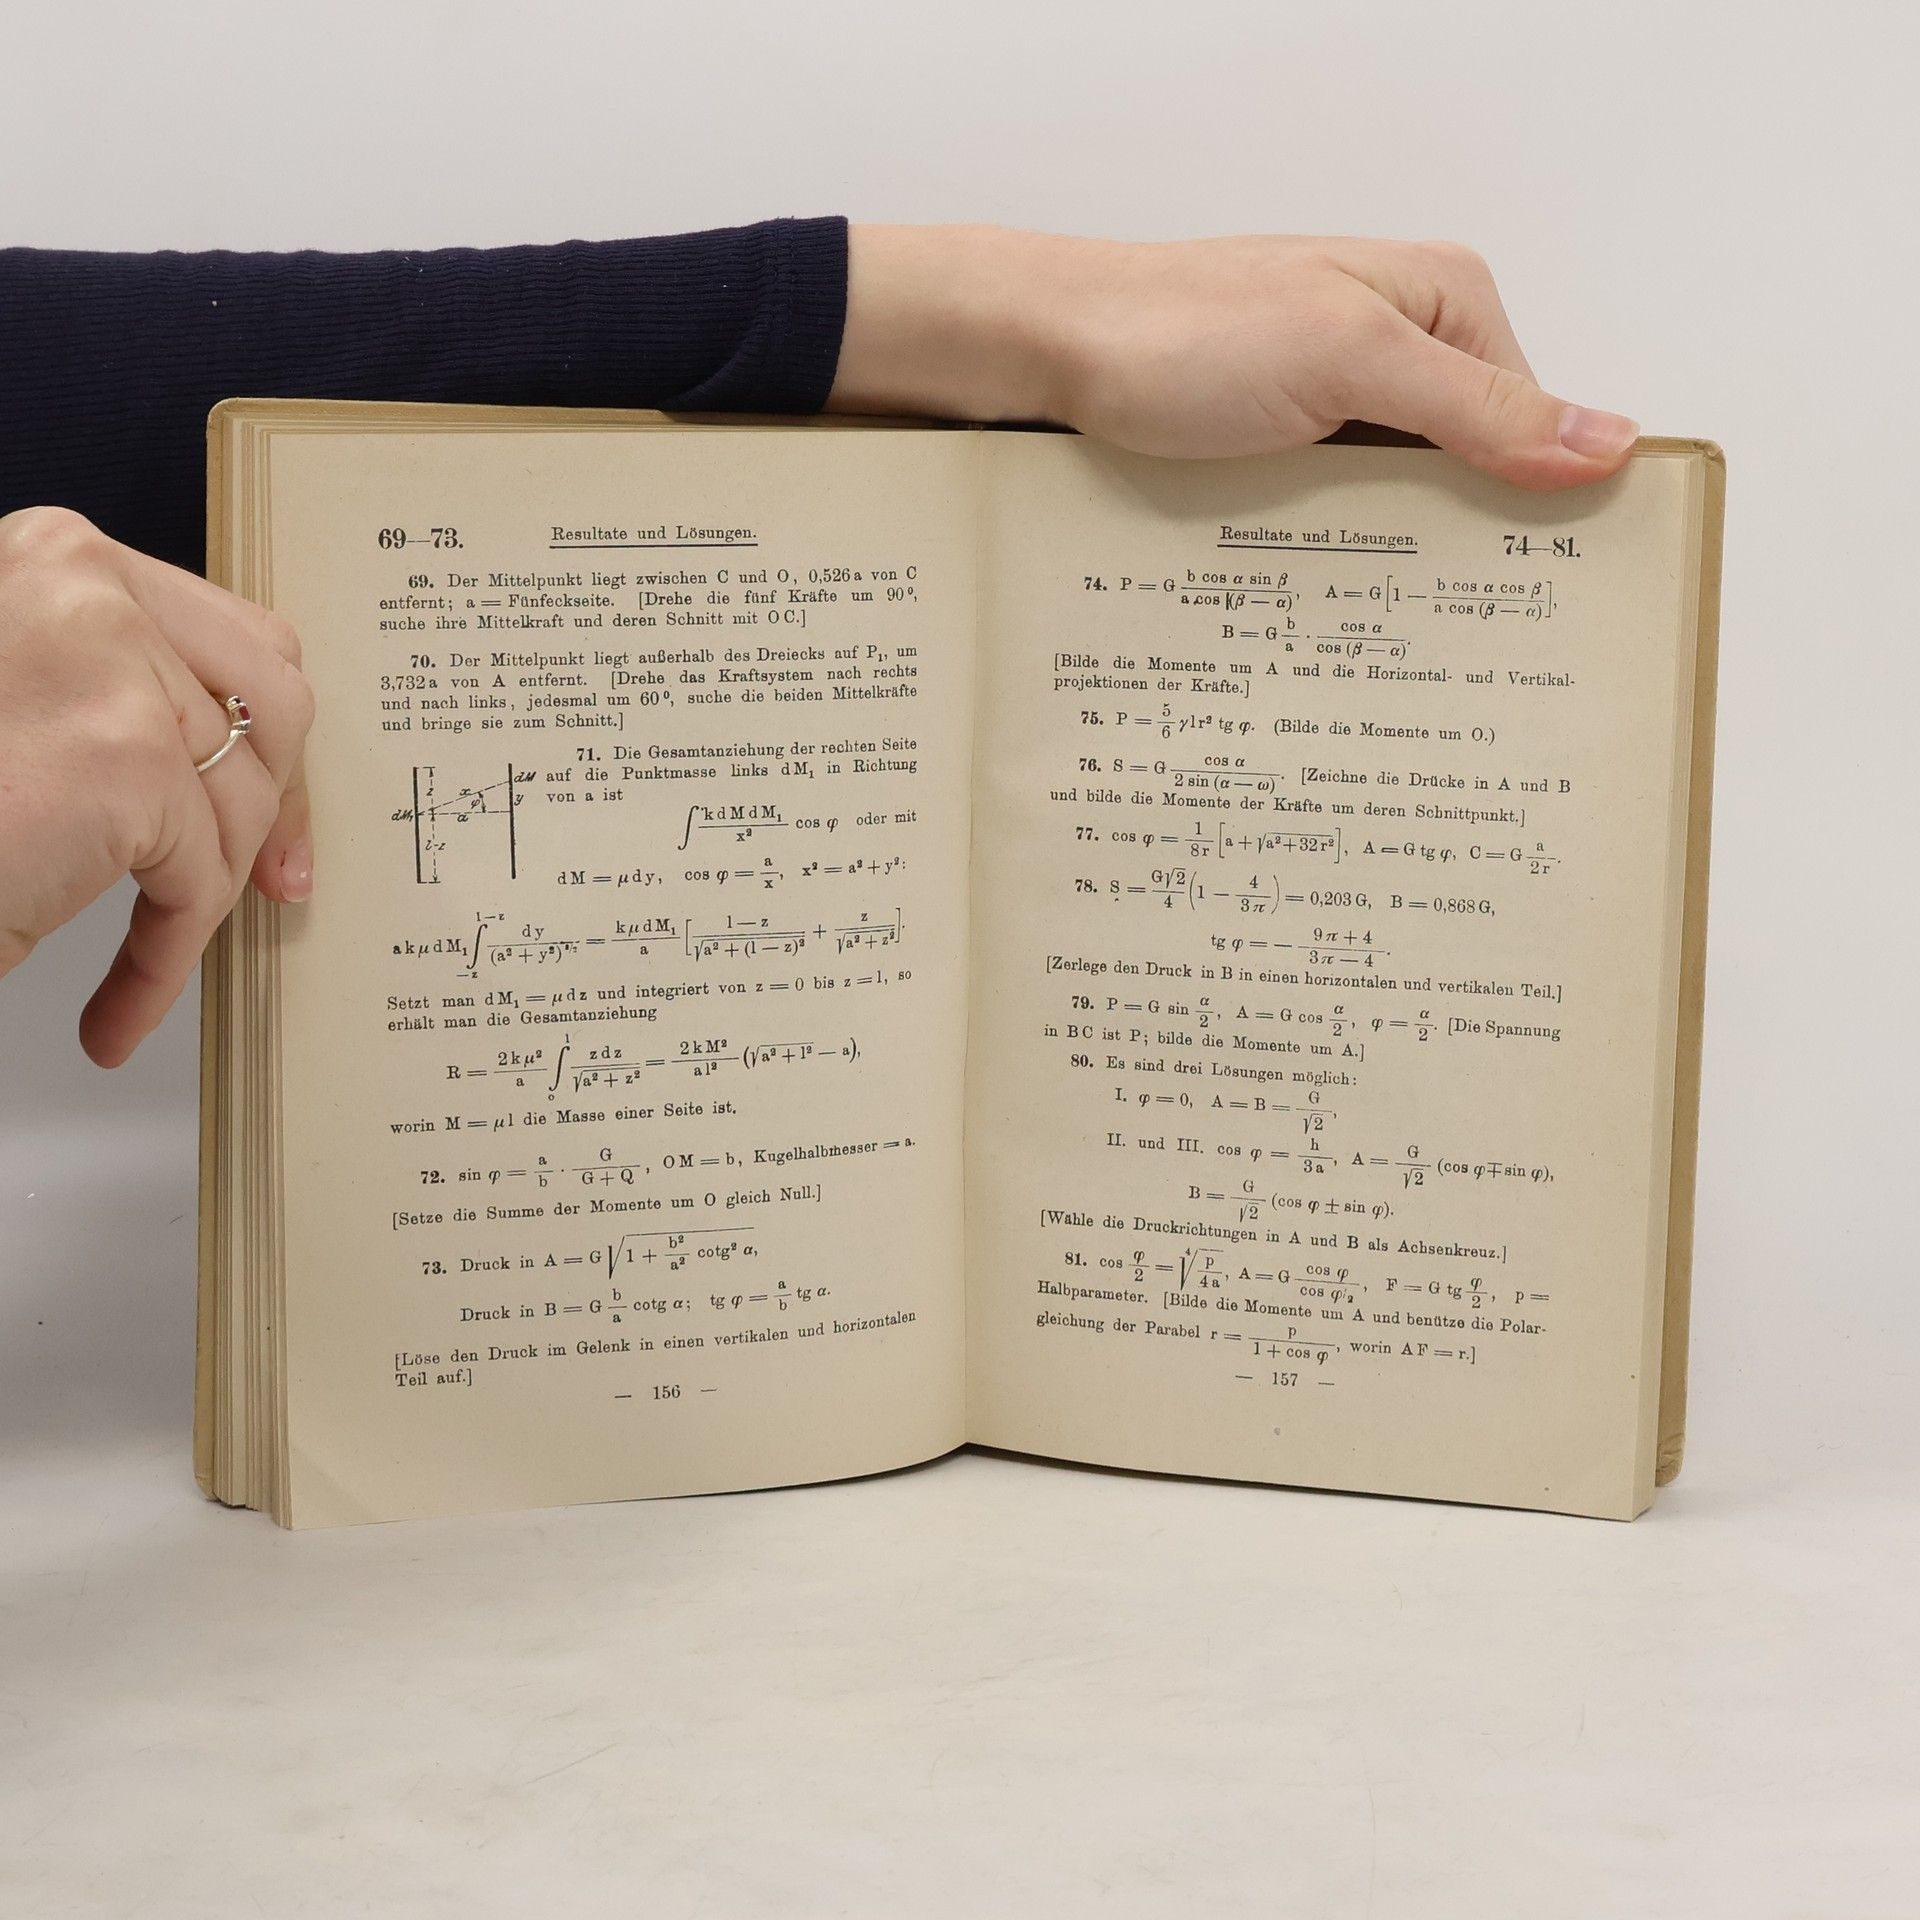 69—73. Resultate und Lösungen.
69. Der Mittelpunkt liegt zwischen C und O, 0,526 a von C
entfernt; a = Fünfeckseite. [Drehe die fünf Kräfte um 90°,
suche ihre Mittelkraft und deren Schnitt mit O C.]
70. Der Mittelpunkt liegt außerhalb des Dreiecks auf P₁, um
3,732 a von A entfernt. [Drehe das Kraftsystem nach rechts
und nach links, jedesmal um 60°, suche die beiden Mittelkräfte
und bringe sie zum Schnitt.]
71. Die Gesamtanziehung der rechten Seite
auf die Punktmasse links dM₁ in Richtung
von a ist
dM₁ z l-z x φ a dM y
∫ k dM dM₁ / x² cos φ oder mit
dM = μ dy, cos φ = a/x, x² = a² + y²:
a k μ dM₁ ∫_{-z}^{l-z} dy / (a² + y²)^{3/2} = k μ dM₁ / a [ (l — z) / √(a² + (l — z)²) + z / √(a² + z²) ].
Setzt man dM₁ = μ dz und integriert von z = 0 bis z = l, so
erhält man die Gesamtanziehung
R = 2 k μ² / a ∫_{o}^{l} z dz / √(a² + z²) = 2 k M² / a l² (√(a² + l²) — a),
worin M = μ l die Masse einer Seite ist.
72. sin φ = a/b · G / (G + Q), O M = b, Kugelhalbmesser = a.
[Setze die Summe der Momente um O gleich Null.]
73. Druck in A = G √(1 + b²/a² cotg² α),
Druck in B = G b/a cotg α; tg φ = a/b tg α.
[Löse den Druck im Gelenk in einen vertikalen und horizontalen
Teil auf.]
— 156 —
Resultate und Lösungen. 74—81.
74. P = G b cos α sin β / a cos (β — α), A = G [1 — b cos α cos β / a cos (β — α)],
B = G b/a · cos α / cos (β — α).
[Bilde die Momente um A und die Horizontal- und Vertikal-
projektionen der Kräfte.]
75. P = 5/6 γ l r² tg φ. (Bilde die Momente um O.)
76. S = G cos α / 2 sin (α — ω). [Zeichne die Drücke in A und B
und bilde die Momente der Kräfte um deren Schnittpunkt.]
77. cos φ = 1/8r [a + √(a² + 32 r²)], A = G tg φ, C = G a/2r.
78. S = G√2/4 (1 — 4/3π) = 0,203 G, B = 0,868 G,
tg φ = — (9π + 4) / (3π — 4).
[Zerlege den Druck in B in einen horizontalen und vertikalen Teil.]
79. P = G sin α/2, A = G cos α/2, φ = α/2. [Die Spannung
in B C ist P; bilde die Momente um A.]
80. Es sind drei Lösungen möglich:
I. φ = 0, A = B = G/√2,
II. und III. cos φ = h/3a, A = G/√2 (cos φ ∓ sin φ),
B = G/√2 (cos φ ± sin φ).
[Wähle die Druckrichtungen in A und B als Achsenkreuz.]
81. cos φ/2 = ⁴√(p/4a), A = G cos φ / cos φ/2, F = G tg φ/2, p =
Halbparameter. [Bilde die Momente um A und benütze die Polar-
gleichung der Parabel r = p / (1 + cos φ), worin A F = r.]
— 157 —